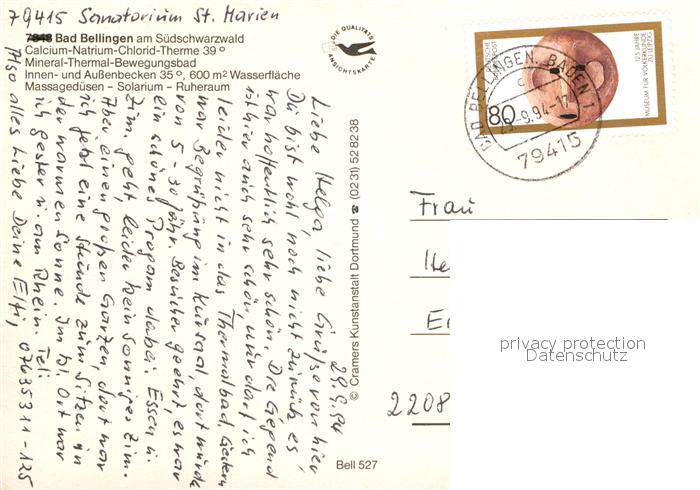 79415 Sanatorium St. Marien
7848 Bad Bellingen am Südschwarzwald
Calcium-Natrium-Chlorid-Therme 39°
Mineral-Thermal-Bewegungsbad
Innen- und Außenbecken 35°, 600 m² Wasserfläche
Massagedüsen – Solarium – Ruheraum
DIE QUALITÄTS ANSICHTSKARTE
29.9.94
Liebe Helga, liebe Grüße von hier
Du bist wohl noch nicht zurück, es
war hoffentlich sehr schön. Die Gegend
ist hier auch sehr schön, nur darf ich
leider nicht in das Thermalbad. Gestern
war Begrüßung im Kursaal, dort wurde
von 5 - 30 jähr. Besucher geehrt, es war
ein schönes Program dabei. Essen u.
Zim. geht, leider kein sonniges Zim.
Aber einen großen Garten, dort war
ich jetzt eine Stunde zum Sitzen in
der warmen Sonne. Im Ort war
ich gestern u. am Rhein. Tel:
Also alles Liebe Deine Elfi, 07635311-125
© Cramers Kunstanstalt Dortmund ☎ (0231) 528238
Bell 527
DEUTSCHE BUNDESPOST
80
125 JAHRE
MUSEUM FÜR VÖLKERKUNDE
ZU LEIPZIG
BAD BELLINGEN, BADEN 1
9.94-17
79415
Frau
He
E
2208
privacy protection
Datenschutz